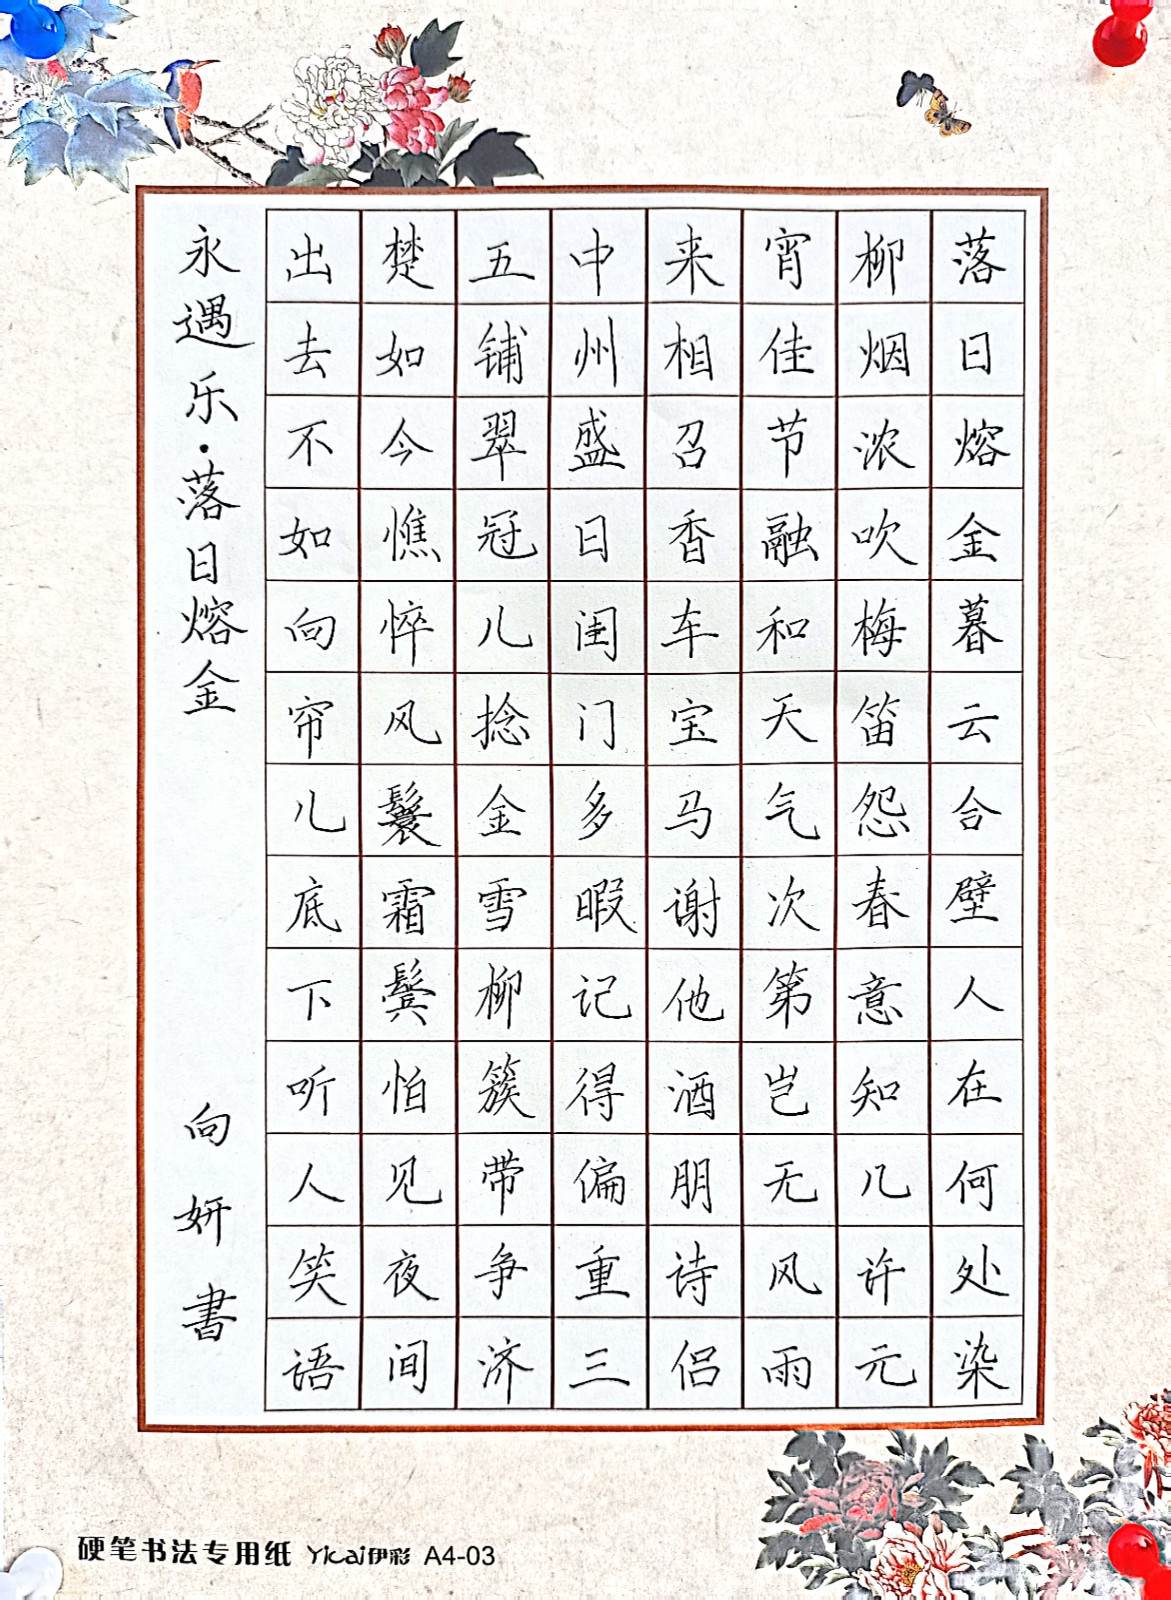 落日熔金暮云合壁人在何处染
柳烟浓吹梅笛怨春意知几许元
宵佳节融和天气次第岂无风雨
来相召香车宝马谢他酒朋诗侣
中州盛日闺门多暇记得偏重三
五铺翠冠儿捻金雪柳簇带争济
楚如今憔悴风鬟霜鬓怕见夜间
出去不如向帘儿底下听人笑语
永遇乐·落日熔金
向妍書
硬笔书法专用纸 Yicai伊彩 A4-03